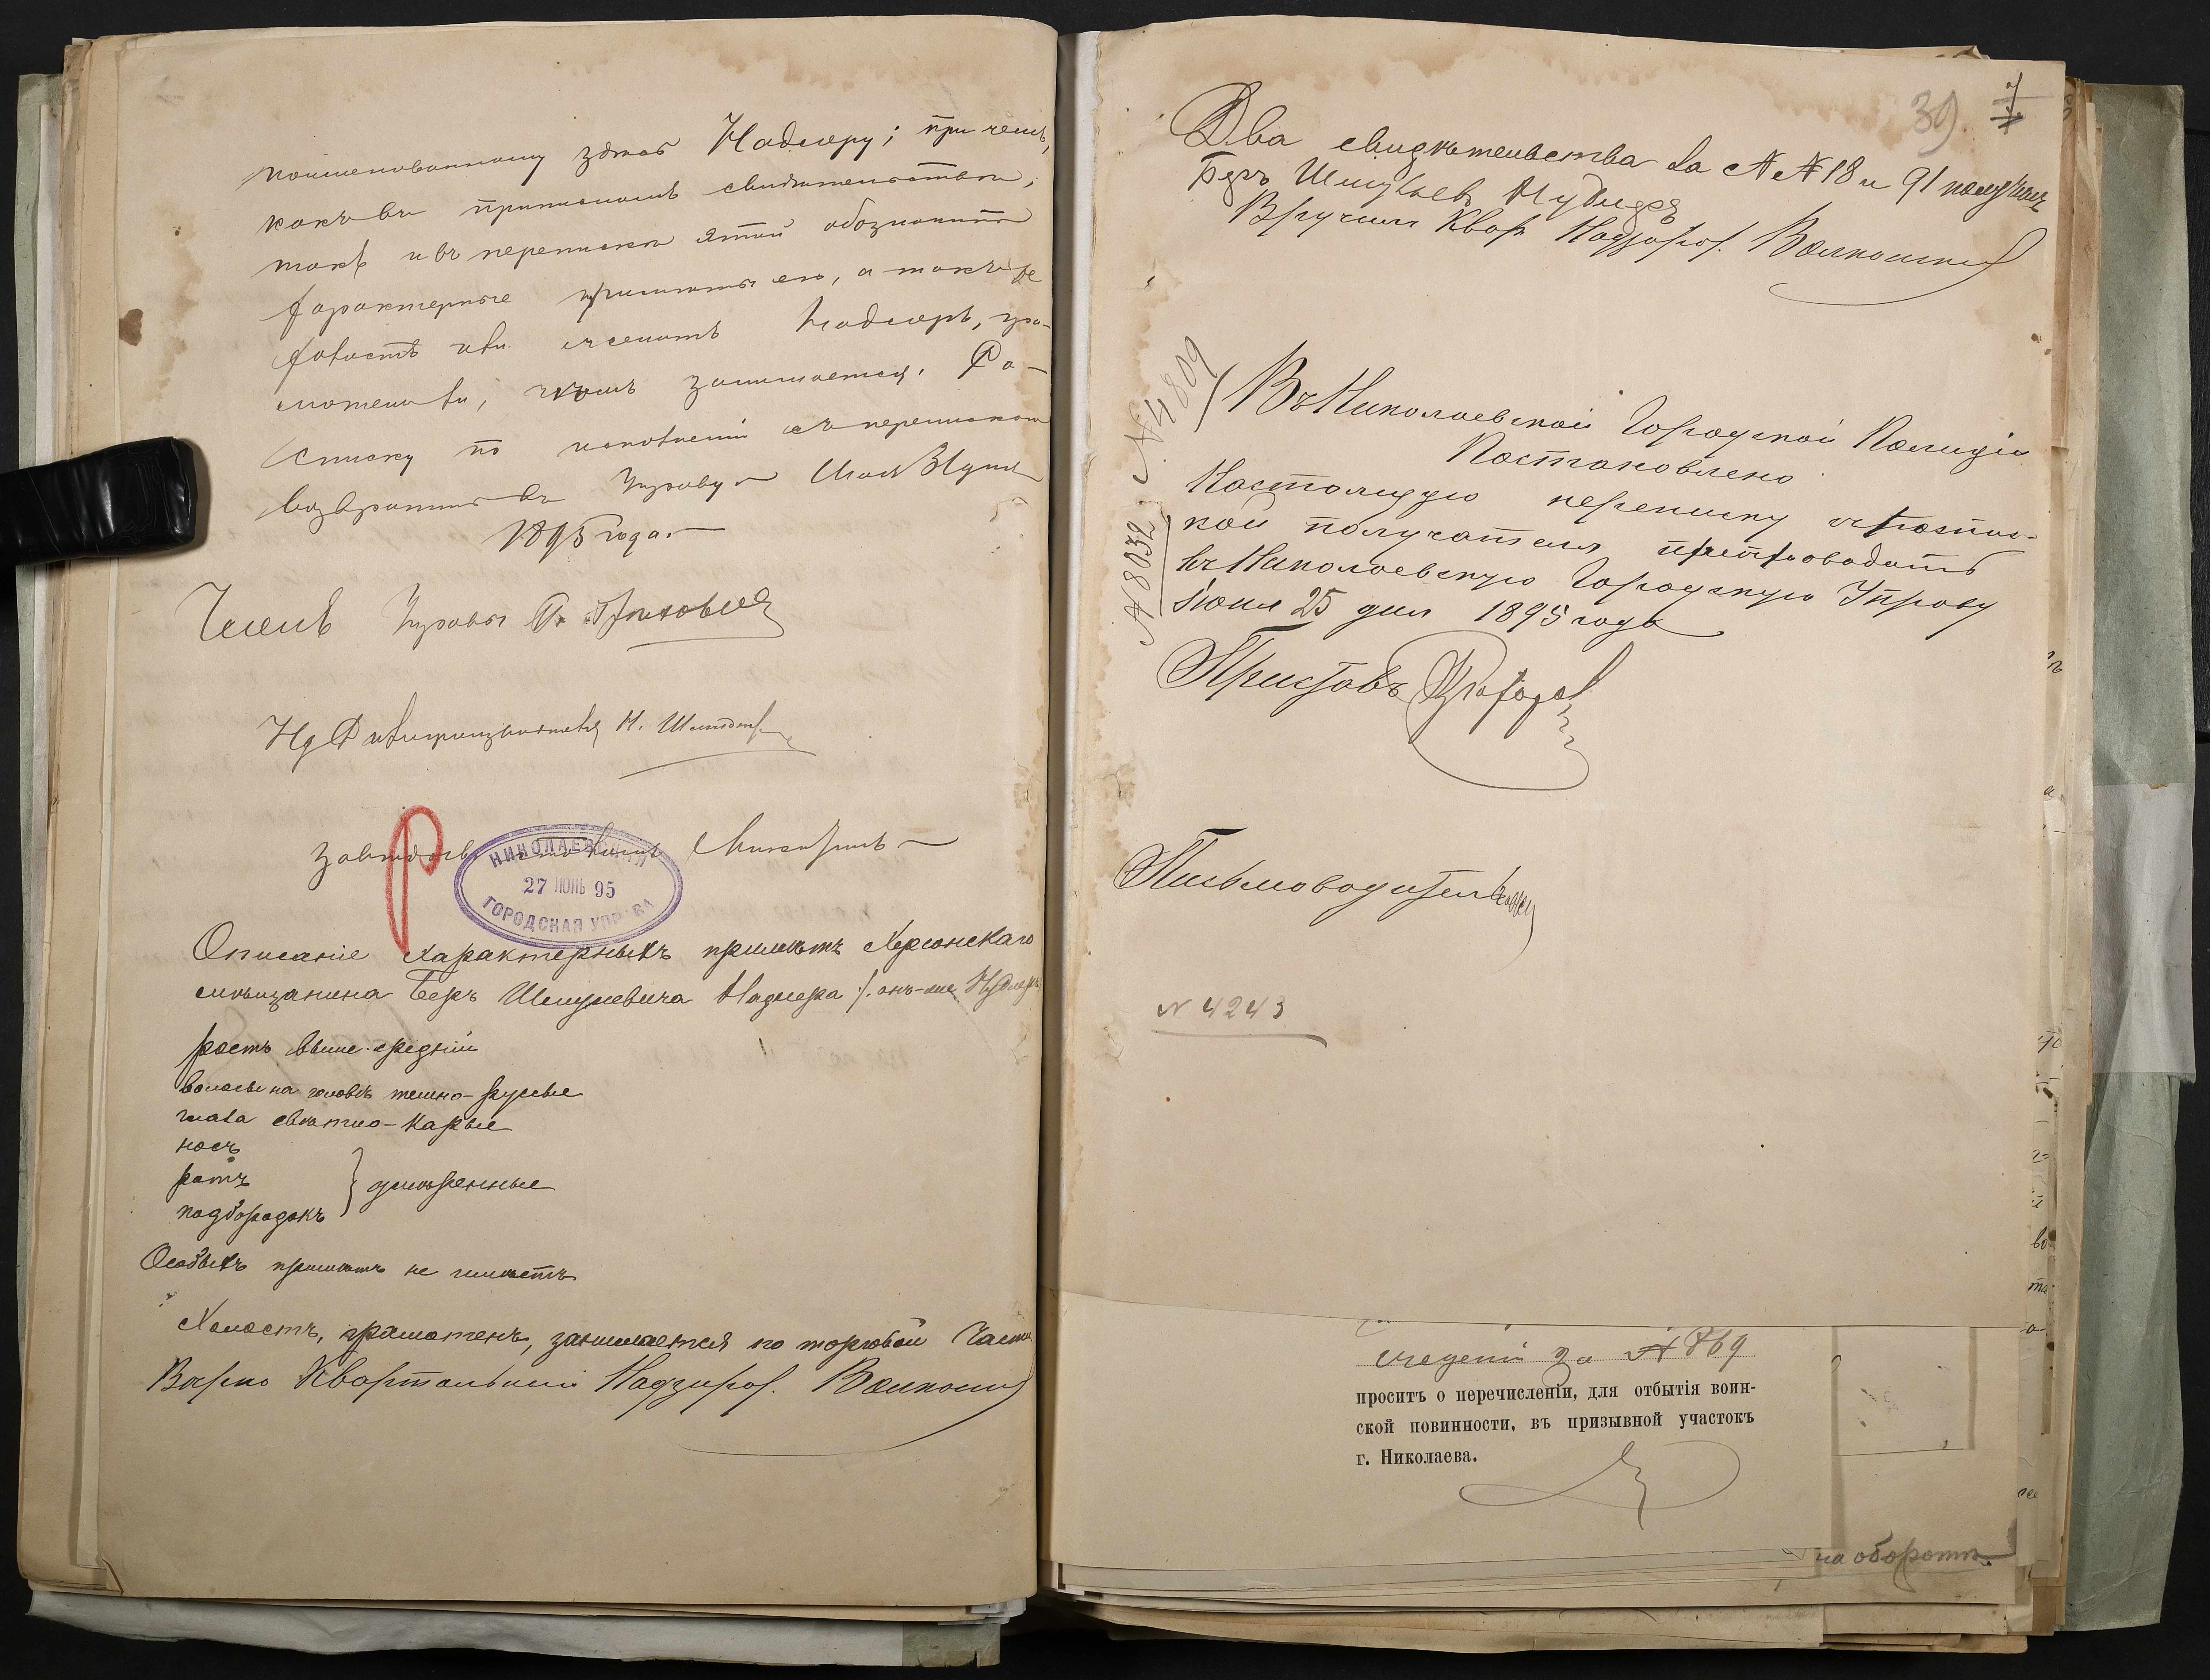 поименованному здесь Надлеру; при чемъ,
какъ въ приписномъ свидетельстве,
такъ и въ переписке этой обозначить
характерные приметы его, а также
холостъ или женатъ Надлеръ, гра-
мотенъ ли, чемъ занимается. Ра-
списку по исполнении съ перепискою
возвратить въ Управу.
1895 года.
Членъ Управы
Заведывающій столомъ
НИКОЛАЕВСКАЯ
27 ІЮНЬ 95
ГОРОДСКАЯ УПРАВА
Описаніе характерныхъ приметъ Херсонскаго
мѣщанина Беръ Шмулевича Надлера /. онъ-же Нудлеръ
ростъ выше-средній
волосы на головѣ темно-русые
глаза свѣтло-карые
носъ
ротъ } умѣренные
подбородокъ
Особыхъ примѣтъ не имѣетъ
Холостъ, грамотенъ, занимается по торговой части
Вѣрно Квартальный Надзират.
39
7
Два свидѣтельства за №№ 18 и 91 получилъ
Беръ Шмулевъ Нудлеръ
Вручилъ Кварт. Надзират.
№ 4809
№ 8032
Въ Николаевской Городской Полиціи
Постановлено
Настоящую переписку съ роспис-
кой получателя препроводить
въ Николаевскую Городскую Управу
Іюня 25 дня 1895 года
Приставъ
Письмоводитель
№ 4243
за № 869
проситъ о перечисленіи, для отбытія воин-
ской повинности, въ призывной участокъ
г. Николаева.
на оборотѣ.